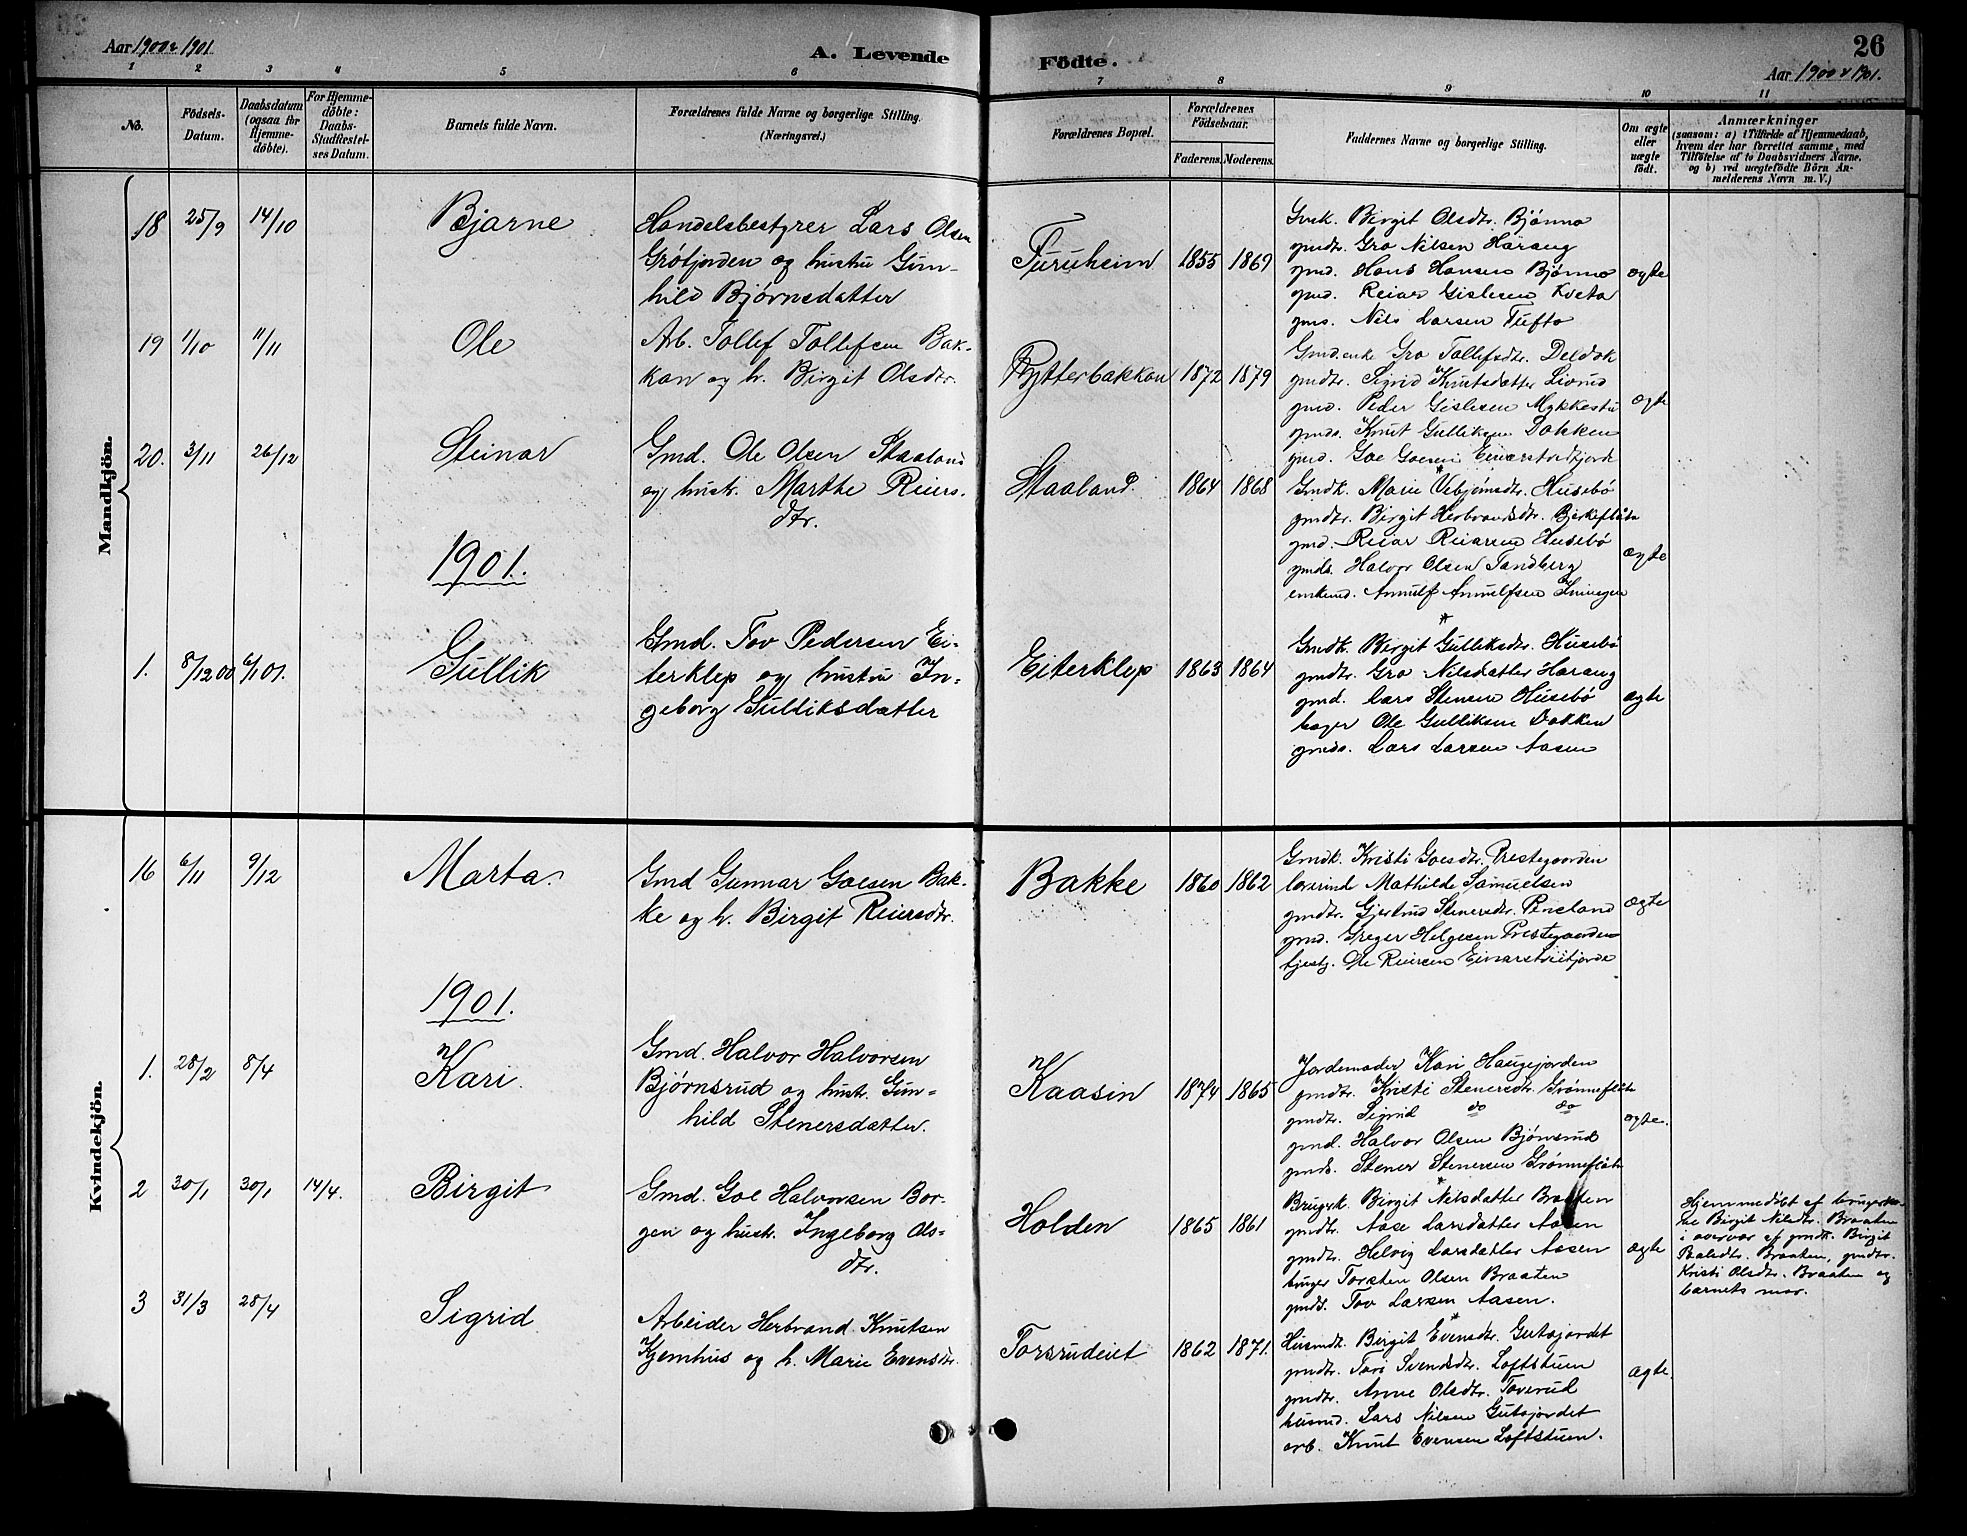 Aar 1900 & 1901
A. Levende Födte.
26
Aar 1900 & 1901.
1 2 3 4 5 6 7 8 9 10 11
No.
Födsels-Datum.
Daabsdatum (ogsaa for Hjemme-döbte).
For Hjemme-döbte: Daabs-Stadfæstel-ses Datum.
Barnets fulde Navn.
Forældrenes fulde Navne og borgerlige Stilling.
(Næringsvei.)
Forældrenes Bopæl.
Forældrenes Födselsaar.
Faderens. Moderens.
Faddernes Navne og borgerlige Stilling.
Om ægte eller uægte födt.
Anmærkninger
(saasom: a) i Tilfælde af Hjemmedaab,
hvem der har forrettet samme, med
Tilföielse af to Daabsvidners Navne,
og b) ved uægtefödte Börn An-
melderens Navn m. V.)
Mandkjön.
18 25/9 14/10 Bjarne
Handelsbestyrer Lars Olsen
Gröfjorden og hustru Gun-
hild Bjørnsdatter
Furuheim 1855 1869
Gvsk. Birgit Olsdtr. Bjønno
gmdtr. Gro Nilsen Harang
gmd. Hans Hansen Bjønno
gmd. Reiar Gislesen Kveto
gms. Nils Larsen Tufto
ægte
19 1/10 11/11 Ole
Arb. Tollef Tollefsen Bak-
kan og h. Birgit Olsdtr.
Rytterbakkan 1872 1879
Gmd.enke Gro Tollefsdtr. Deldok
gmdtr. Sigrid Knutsdatter Liorud
gmd. Peder Gislesen Mykkestu
gmds. Knut Gulliksen Dokken
gmd. Goe Goesen
ægte
20. 3/11 26/12 Steinar
Gmd. Ole Olsen Staaland
og hustr. Marthe Reiers-
dtr.
Staaland. 1864 1868
Gmdk. Marie Vebjørnsdtr. Husebö
gmdtr. Birgit Herbrandsdtr. Bjerkeflaata
gmd. Reiar Reiarsen Husebö
gmds. Halvor Olsen Tandberg
enkemd. Arnulf Arnulfsen
ægte
1901.
1. 8/12 00 6/1 01. Gullik
Gmd. Tov Pedersen Ei-
terklep og hustru In-
geborg Gulliksdatter
Eiterklep 1863 1864
Gmdk. Birgit Gulliksdtr. Husebö
gmdtr. Gro Nilsdatter Harang
gmd. Lars Stensen Husebö
bager Ole Gulliksen Dokken
gmds. Lars Larsen Aasen
ægte
Kvindekjön.
16 6/11 9/12 Marta.
Gmd Gunnar Goesen Bak-
ke og h. Birgit Reiersdtr.
Bakke 1860 1862
Gmdk. Kristi Goesdtr. Prestegaarden
lærerind Mathilde Samuelsen
gmdtr. Gjertrud Stenersdtr. Peneland
gmd. Greger Helgesen Prestegaarden
tjestg. Ole Reiersen
ægte
1901.
1. 28/2 8/4 Kari.
Gmd. Halvor Halvorsen
Bjørnsrud og hustr. Gun-
hild Stenersdatter.
Kaasin 1874 1865
Jordemoder Kari Haugejorden
gmdtr. Kristi Stenersdtr. Grønneflate
gmdtr. Sigrid do do
gmd. Halvor Olsen Bjørnsrud
gmds. Stener Stenersen Grønneflate
ægte.
2 30/1 30/1 14/4. Birgit
Gmd. Goe Halvorsen Bor-
gen og hustr. Ingeborg Ols-
dtr.
Holden 1865 1861
Brugsk. Birgit Nilsdatter Braaten
gmdtr. Aase Larsdatter Aasen
gmdtr. Helvig Larsdatter Aasen
bruger Torsten Olsen Braaten
gmds. Tov Larsen Aasen.
ægte
Hjemmedøbt af brugerko-
ne Birgit Nilsdtr. Braaten
i overvær af gmdk. Birgit
Paalsdtr. Braaten, gmdtr.
Kristi Olsdtr. Braaten og
barnets mor.
3 31/3 28/4 Sigrid
Arbeider Herbrand Knutsen
Kjemhus og h. Marie Evensdtr.
Torsrudeiet 1862 1871.
Husmdk. Birgit Evensdtr. Gutujordet
gmdtr. Tori Svendsdtr. Loftstuen
gmdtr. Anne Olsdtr. Toverud
husmd. Lars Nilsen Gutujordet
arb. Knut Evensen Loftstuen.
ægte.